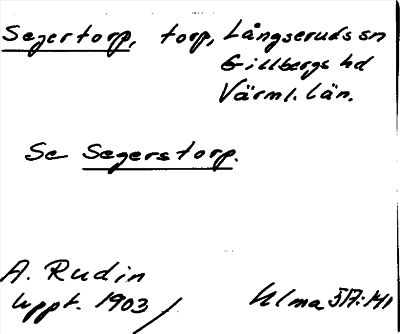 Segertorp, torp, Långseruds sn
Gillbergs hd
Värml. län.
Se Segerstorp.
A. Rudin
uppt. 1903 /
Ulma 517:141